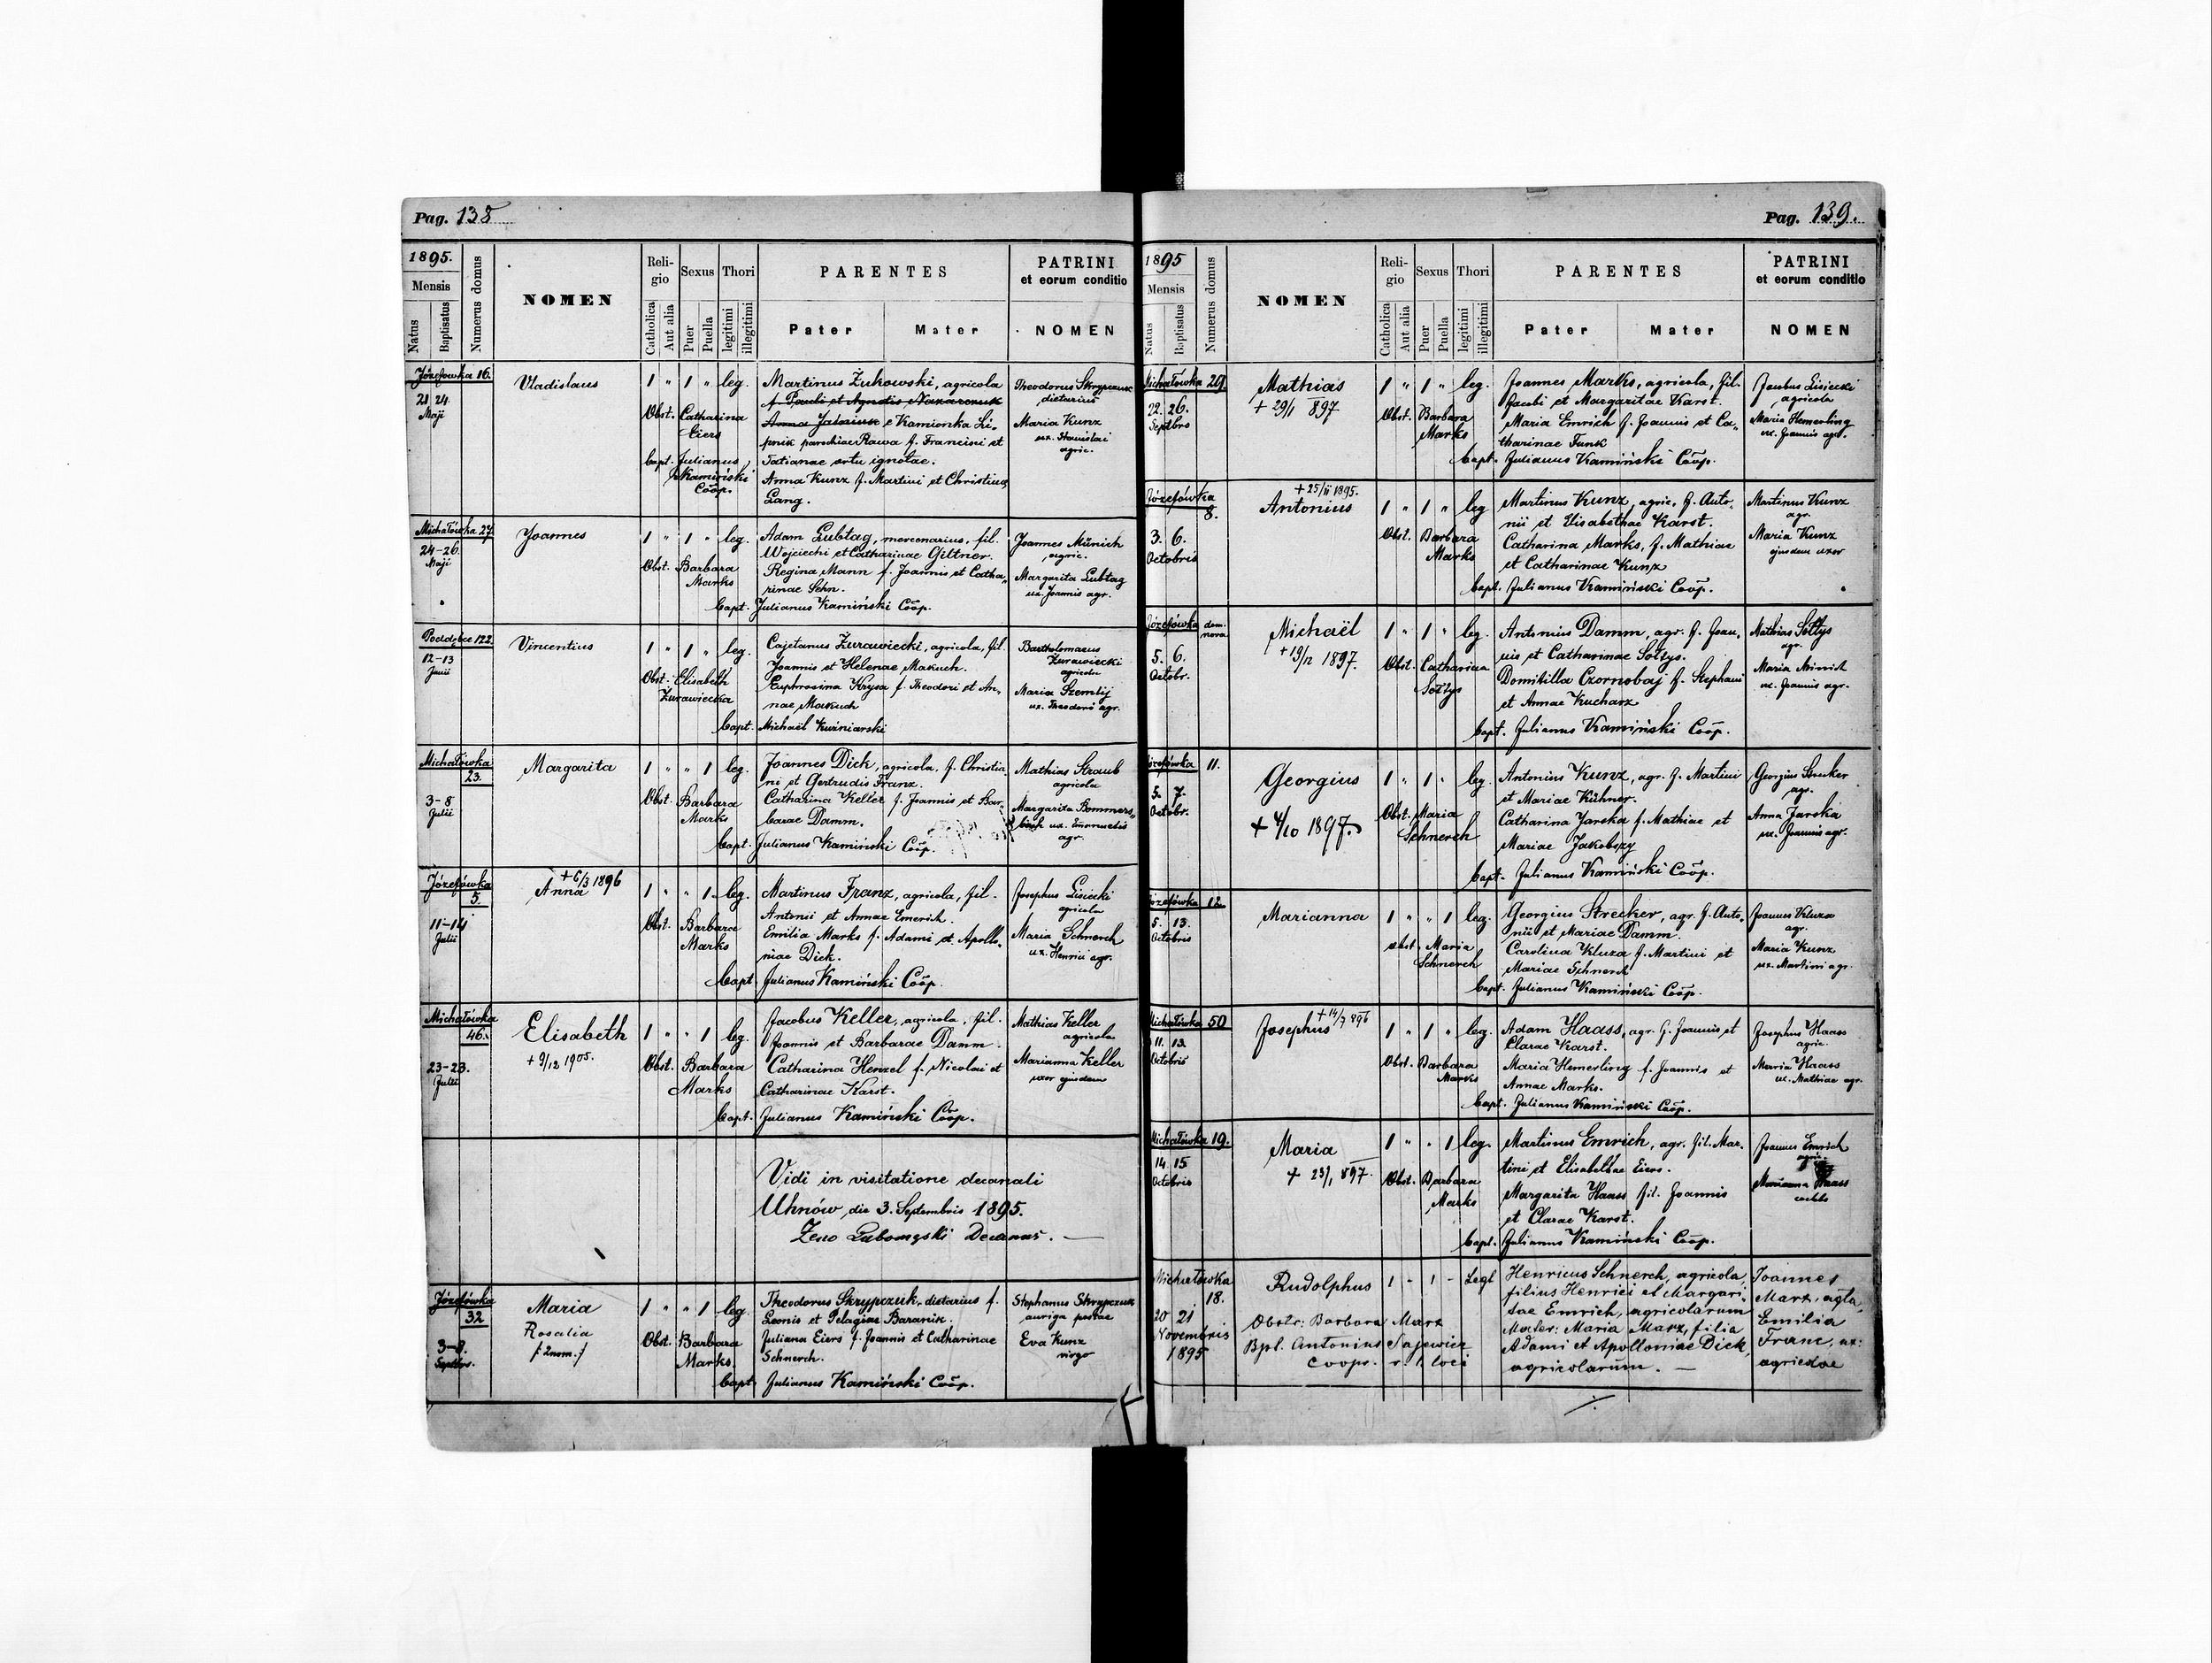 Pag. 138
1895.
Mensis
Natus
Baptisatus
Numerus domus
NOMEN
Religio
Catholica
Aut alia
Sexus
Puer
Puella
Thori
legitimi
illegitimi
PARENTES
Pater Mater
PATRINI
et eorum conditio
NOMEN
Józefówka 16.
21. 24.
Maji
Vladislaus
1 " 1 " leg.
Obst. Catharina
Eiers
bapt. Julianus
Kamiński
Coop.
Martinus Żukowski, agricola
f. Pauli et Agnetis Nazarczuk
Anna e Kamionka Li-
pnik parochiae Rawa f. Francisci et
Tatianae ortu ignotae.
Anna Kunz f. Martini et Christinae
Lang.
Theodorus Skrypczuk
dietarius
Maria Kunz
ux. Stanislai
agric.
Michałówka 27.
24-26.
Maji
Joannes
1 " 1 " leg.
Obst. Barbara
Marks
Adam Lubtag, mercenarius, fil.
Wojciechi et Catharinae Gittner.
Regina Mann f. Joannis et Catha-
rinae Sehn.
bapt. Julianus Kamiński Coop.
Joannes Münich
agric.
Margarita Lubtag
ux. Joannis agr.
Poddębce 122.
12-13
Junii
Vincentius
1 " 1 " leg.
Obst. Elisabeth
Żurawiecka
Cajetanus Żurawiecki, agricola, fil.
Joannis et Helenae Makuch.
Euphrosina Krysa f. Theodori et An-
nae Makuch
bapt. Michaël Kuśniarski
Bartholomaeus
Żurawiecki
agricola
Maria Szemlij
ux. Theodori agr.
Michałówka
23.
3-8
Julii
Margarita
1 " " 1 leg.
Obst. Barbara
Marks
Joannes Dich, agricola, f. Christia-
ni et Gertrudis Franz.
Catharina Keller f. Joannis et Bar-
barae Damm.
bapt. Julianus Kamiński Coop.
Mathias Straub
agricola
Margarita Bommers-
bach ux. Emanuelis
agr.
Józefówka
5.
11-14
Julii
+ 6/3 1896
Anna
1 " " 1 leg.
Obst. Barbara
Marks
Martinus Franz, agricola, fil.
Antonii et Annae Emerich.
Emilia Marks f. Adami et Apollo-
niae Dick.
bapt. Julianus Kamiński Coop.
Josephus Lisiecki
agricola
Maria Schnerch
ux. Henrici agr.
Michałówka
46.
23-23.
Julii
Elisabeth
+ 9/12 1905.
1 " " 1 leg.
Obst. Barbara
Marks
Jacobus Keller, agricola, fil.
Joannis et Barbarae Damm.
Catharina Henzel f. Nicolai et
Catharinae Karst.
bapt. Julianus Kamiński Coop.
Mathias Keller
agricola
Marianna Keller
uxor ejusdem
Vidi in visitatione decanali
Uhnów die 3. Septembris 1895.
Zeno Lubomęski Decanus.
Józefówka
32
3-8.
Septbr.
Maria
Rosalia
/: 2nom. :/
1 " " 1 leg.
Obst. Barbara
Marks.
Theodorus Skrypczuk, dietarius f.
Leonis et Pelagiae Baranik.
Juliana Eiers f. Joannis et Catharinae
Schnerch.
bapt. Julianus Kamiński Coop.
Stephanus Skrypczuk
auriga postae
Eva Kunz
virgo
Pag. 139.
1895
Mensis
Natus
Baptisatus
Numerus domus
NOMEN
Religio
Catholica
Aut alia
Sexus
Puer
Puella
Thori
legitimi
illegitimi
PARENTES
Pater Mater
PATRINI
et eorum conditio
NOMEN
Michałówka 29.
22. 26.
Septbris
Mathias
+ 29/1 897
1 " 1 " leg.
Obst. Barbara
Marks
Joannes Marks, agricola, fil.
Jacobi et Margaritae Karst.
Maria Emrich f. Joannis et Ca-
tharinae Funk
bapt. Julianus Kamiński Coop.
Jacobus Lisiecki
agricola
Maria Hemerling
ux. Joannis agr.
Józefówka
8.
3. 6.
Octobris
+ 25/11 1895.
Antonius
1 " 1 " leg
Obst. Barbara
Marks
Martinus Kunz, agric. f. Anto-
nii et Elisabethae Karst.
Catharina Marks, f. Mathiae
et Catharinae Kunz
bapt. Julianus Kamiński Coop.
Martinus Kunz
agr.
Maria Kunz
ejusdem uxor
Józefówka dom.
nova
5. 6.
Octobr.
Michaël
+ 19/12 1897.
1 " 1 " leg.
Obst. Catharina
Sołtys
Antonius Damm, agr. f. Joan-
nis et Catharinae Sołtys.
Domitilla Czornobaj f. Stephani
et Annae Kucharz
bapt. Julianus Kamiński Coop.
Mathias Sołtys
agr.
Maria
ux. Joannis agr.
Józefówka 11.
5. 7.
Octobr.
Georgius
+ 4/10 1897.
1 " 1 " leg.
Obst. Maria
Schnerch
Antonius Kunz, agr. f. Martini
et Mariae Kühner.
Catharina Jarska f. Mathiae et
Mariae Jakobszy
bapt. Julianus Kamiński Coop.
Georgius Strecker
agr.
Anna Jarska
ux. Joannis agr.
Józefówka 12.
5. 13.
Octobris
Marianna
1 " " 1 leg.
obst. Maria
Schnerch
Georgius Strecker, agr. f. Anto-
nii et Mariae Damm.
Carolina Kluza f. Martini et
Mariae Schnerch
bapt. Julianus Kamiński Coop.
Joannes Kluza
agr.
Maria Kunz
ux. Martini agr.
Michałówka 50
11. 13.
Octobris
Josephus + 14/7 896
1 " 1 " leg.
Obst. Barbara
Marks
Adam Haass, agr. f. Joannis et
Clarae Karst.
Maria Hemerling f. Joannis et
Annae Marks.
bapt. Julianus Kamiński Coop.
Josephus Haass
agric.
Maria Haass
ux. Mathiae agr.
Michałówka 19.
14. 15
Octobris
Maria
+ 23/1 897.
1 " " 1 leg.
Obst. Barbara
Marks
Martinus Emrich, agr. fil. Mar-
tini et Elisabethae Eiers.
Margarita Haass fil. Joannis
et Clarae Karst.
bapt. Julianus Kamiński Coop.
Joannes Emrich
agric.
Marianna Haass
caelebs
Michałówka
18.
20 21
Novembris
1895
Rudolphus
1 - 1 - Legl
Obstr: Barbara Marx
Bpt. Antonius Sajewicz
Coopr. r. l. loci
Henricus Schnerch, agricola,
filius Henrici et Margari-
tae Emrich, agricolarum
Mater: Maria Marx, filia
Adami et Apolloniae Dick,
agricolarum.
Joannes
Marx, agla,
Emilia
Franc, ux:
agricolae